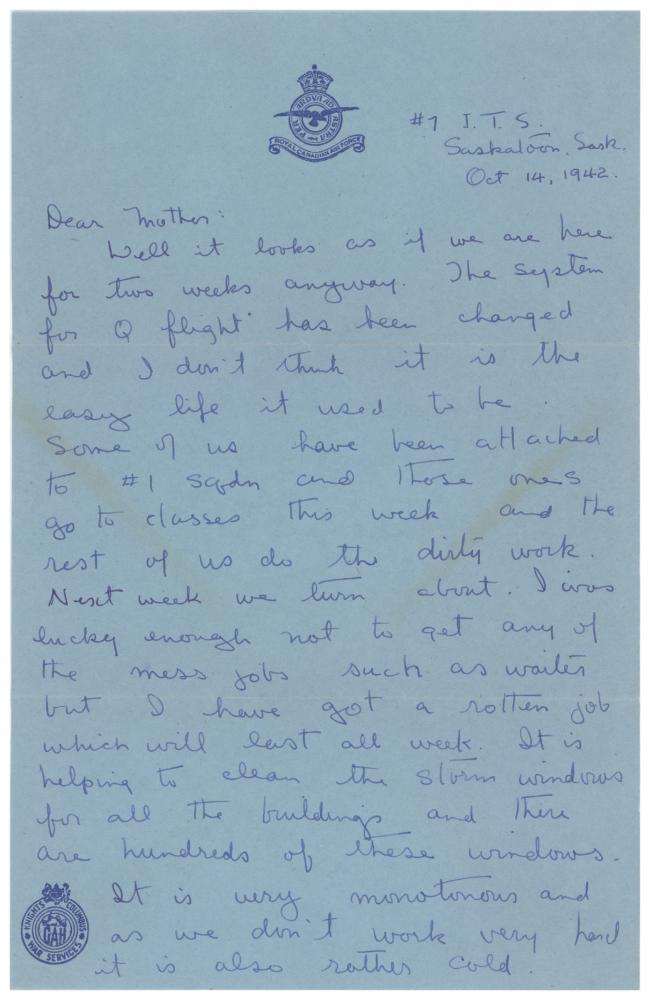 PER ARDVA AD ASTRA
ROYAL CANADIAN AIR FORCE
#7 I.T.S.
Saskatoon, Sask.
Oct 14, 1942.
Dear Mother:
Well it looks as if we are here
for two weeks anyway. The system
for Q flight has been changed
and I don't think it is the
easy life it used to be.
Some of us have been attached
to #1 sqdn and those ones
go to classes this week and the
rest of us do the dirty work.
Next week we turn about. I was
lucky enough not to get any of
the mess jobs such as waiter
but I have got a rotten job
which will last all week. It is
helping to clean the storm windows
for all the buildings and there
are hundreds of these windows.
It is very monotonous and
as we don't work very hard
it is also rather cold.
KNIGHTS OF COLUMBUS
CAH
WAR SERVICES